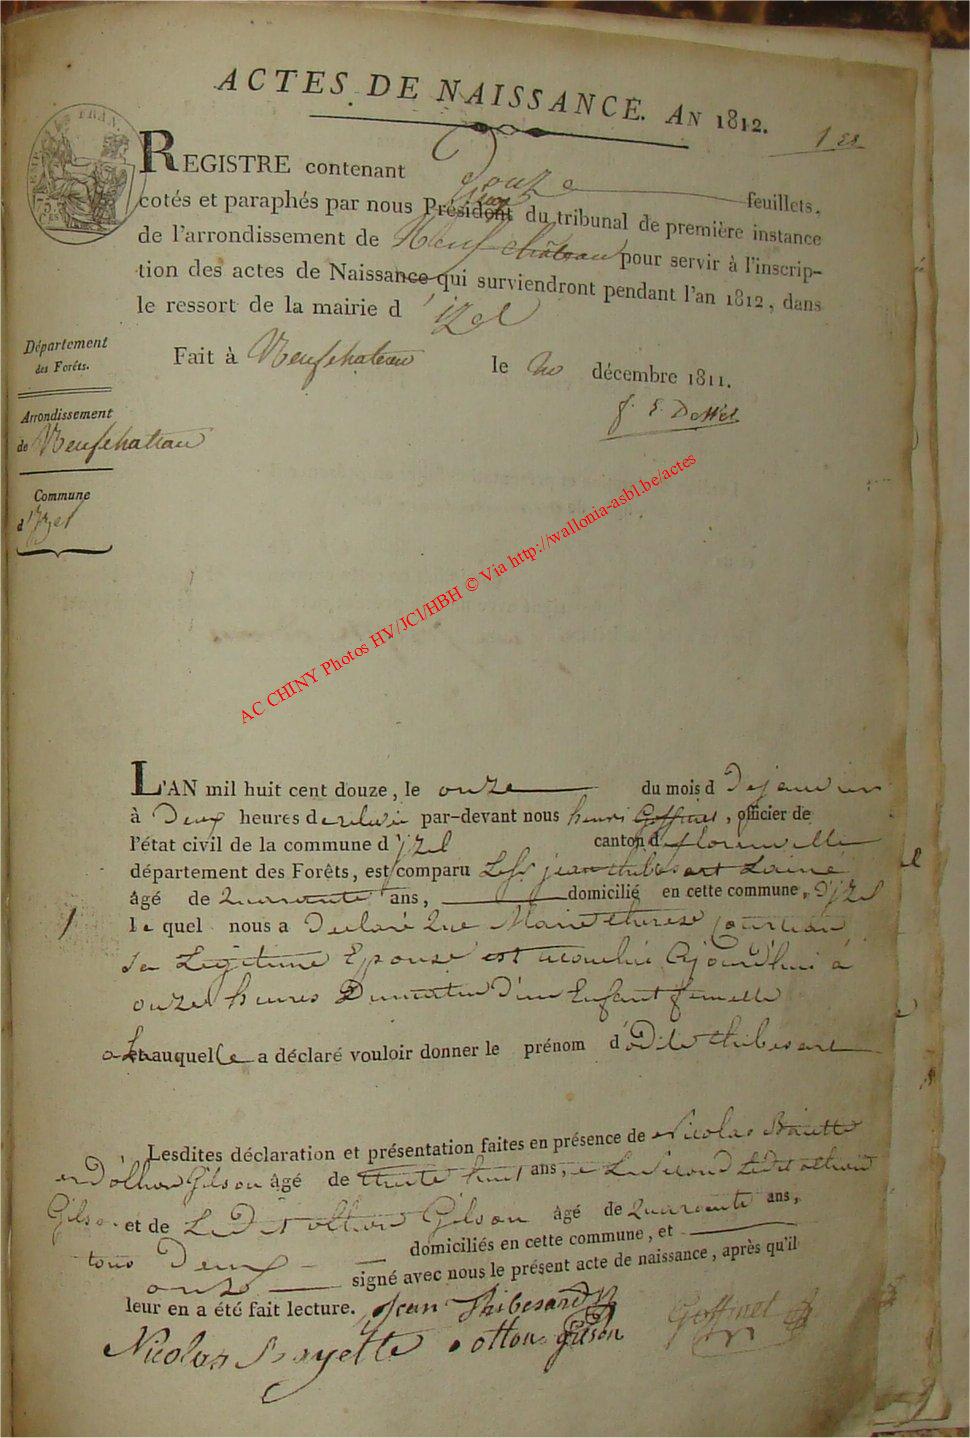 ACTES DE NAISSANCE. AN 1812.
1er
REGISTRE contenant douze feuillets,
cotés et paraphés par nous Président du tribunal de première instance
de l'arrondissement de Neufchâteau pour servir à l'inscrip-
tion des actes de Naissance qui surviendront pendant l'an 1812, dans
le ressort de la mairie d'izel
Fait à Neufchateau le 20 décembre 1811.
Département
des Forêts.
Arrondissement
de Neufchateau
Commune
d'Yzel
AC CHINY Photos HV/JCl/HBH © Via http://wallonia-asbl.be/actes
L'AN mil huit cent douze, le onze du mois d De janvier
à Deux heures de relevée par-devant nous henri Goffinet, officier de
l'état civil de la commune d'yzel canton d florenville
département des Forêts, est comparu Le Sr jean thibesart Lainé
âgé de Quarente ans, domicilié en cette commune, D'yzel
1 le quel nous a Declaré Que Marie therese
Sa Legitime Epouse est acouchée Ajourd'hui à
onze heures Dumatin D'un Enfant femelle
auquelle a déclaré vouloir donner le prénom d'odile thibesart
Lesdites déclaration et présentation faites en présence de Nicolas
Gilson âgé de trente huit ans,
Gilson et de Ledit othon Gilson âgé de Quarente ans,
tous Deux domiciliés en cette commune, et
onts signé avec nous le présent acte de naissance, après qu'il
leur en a été fait lecture. Jean Thibesard Goffinet
Nicolas otton gilson